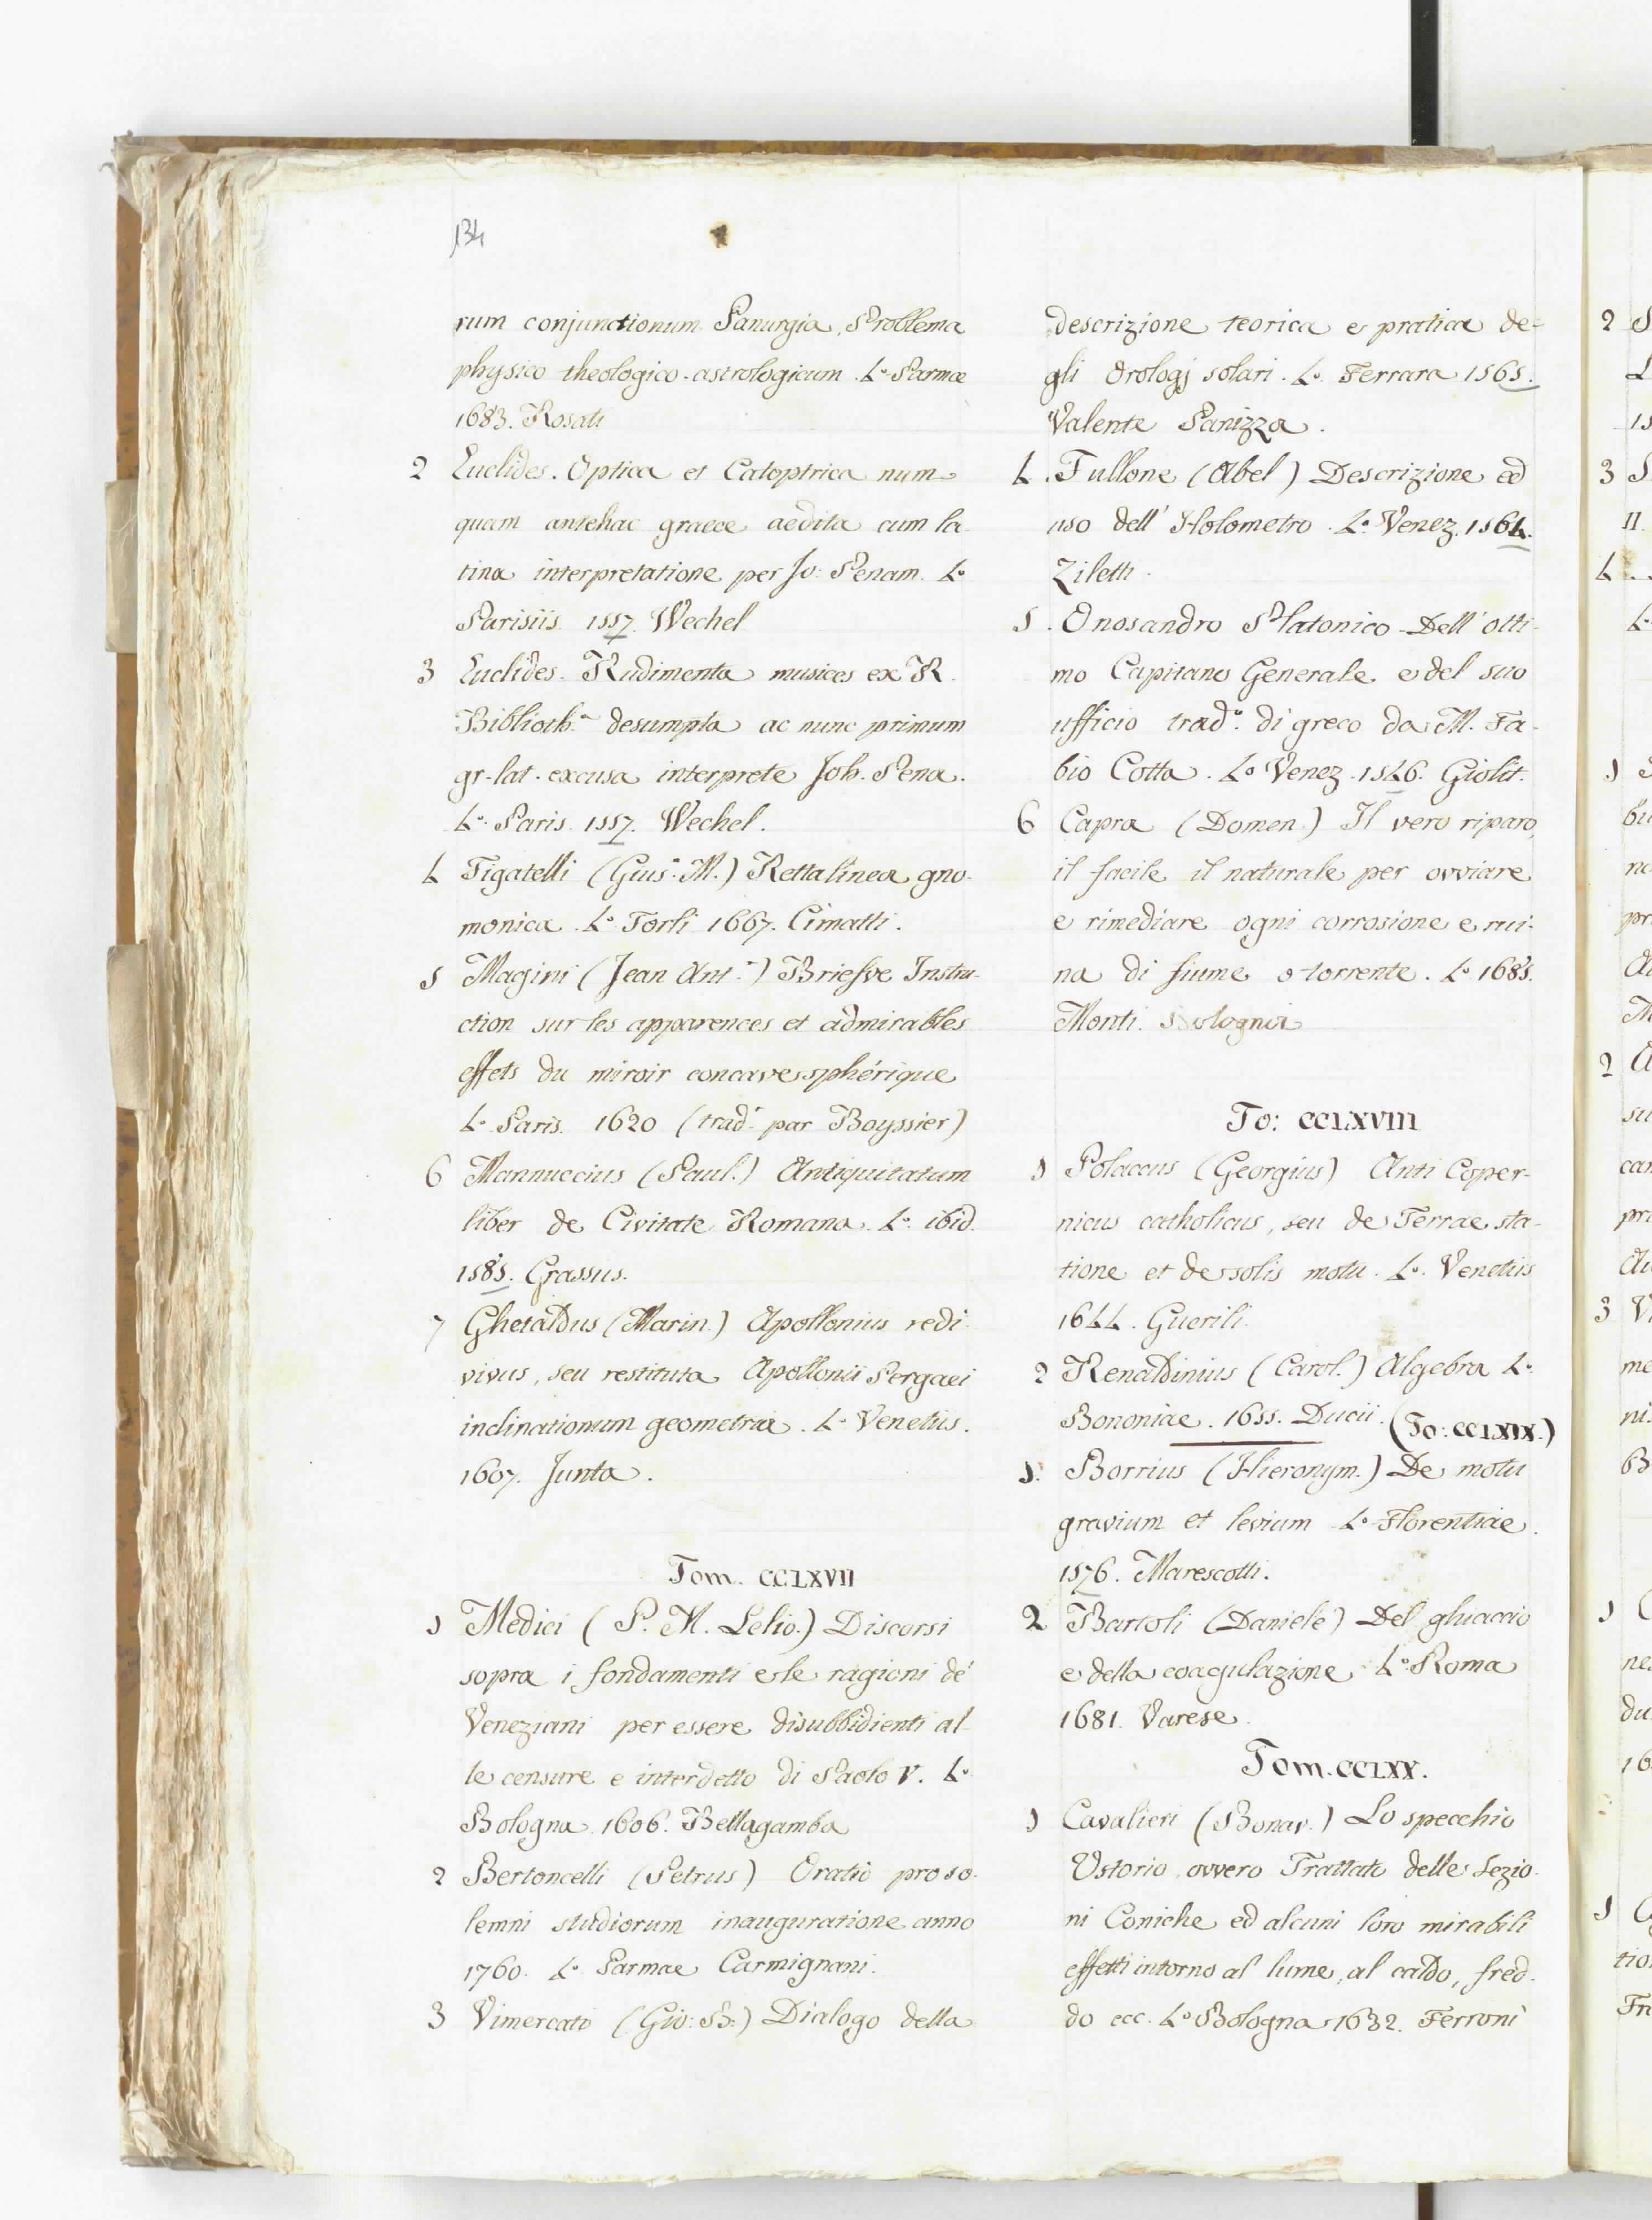 134
rum conjunctionum Panurgia, Problema
physico theologico-astrologicum. 4.º Parmæ
1683. Rosati
2 Euclides. Optica et Catoptrica num-
quam antehac graece aedita cum la
tina interpretatione per Jo: Penam. 4.º
Parisiis 1557. Wechel
3 Euclides. Rudimenta musices ex R.
Biblioth.ª desumpta ac nunc primum
gr-lat. excusa interprete Joh. Pena.
4.º Paris. 1557. Wechel.
4 Figatelli (Gius.e M.) Retta linea gno-
monica. 4.º Forli 1667. Cimatti.
5 Magini (Jean Ant.e) Briefve Instru-
ction sur les apparences et admirables
effets du miroir concave sphérique
4.º Paris. 1620 (trad. par Boyssier)
6 Mannuccius (Paul.) Antiquitatum
liber de Civitate Romana. 4.º ibid.
1585. Grassus.
7 Ghetaldus (Marin.) Apollonius redi-
vivus, seu restituta Apollonii Pergaei
inclinationum geometria. 4.º Venetiis.
1607. Junta.
Tom. CCLXVII
1 Medici (P. M. Lelio.) Discorsi
sopra i fondamenti e le ragioni de'
Veneziani per essere disubbidienti al-
le censure e interdetto di Paolo V. 4.º
Bologna 1606. Bellagamba
2 Bertoncelli (Petrus) Oratio pro so-
lemni studiorum inauguratione anno
1760. 4.º Parmae Carmignani.
3 Vimercato (Gio: B:) Dialogo della
descrizione teorica e pratica de-
gli Orologj solari. 4.º Ferrara 1565.
Valente Panizza.
4. Fullone (Abel) Descrizione ed
uso dell' Holometro. 4.º Venez. 1564.
Ziletti.
5. Onosandro Platonico - Dell' otti-
mo Capitano Generale e del suo
ufficio trad.º di greco da M. Fa-
bio Cotta. 4.º Venez. 1546. Giolit.
6 Capra (Domen.) Il vero riparo,
il facile il naturale per ovviare
e rimediare ogni corrosione e rui-
na di fiume o torrente. 4.º 1685.
Monti. Bologna
To: CCLXVIII
1 Polaccus (Georgius) Anti Coper-
nicus catholicus, seu de Terrae sta-
tione et de solis motu. 4.º Venetiis
1644. Guerili.
2 Renaldinius (Carol.) Algebra 4.º
Bononiae. 1655. Ducii. (To: CCLXIX.)
1. Borrius (Hieronym.) De motu
gravium et levium 4.º Florentiae.
1576. Marescotti.
2 Bartoli (Daniele) Del ghiaccio
e della coagulazione 4.º Roma
1681. Varese.
Tom. CCLXX.
1 Cavalieri (Bonav.) Lo specchio
Ustorio ovvero Trattato delle Sezio-
ni Coniche ed alcuni loro mirabili
effetti intorno al lume, al caldo, fred-
do ecc. 4.º Bologna 1632. Ferroni